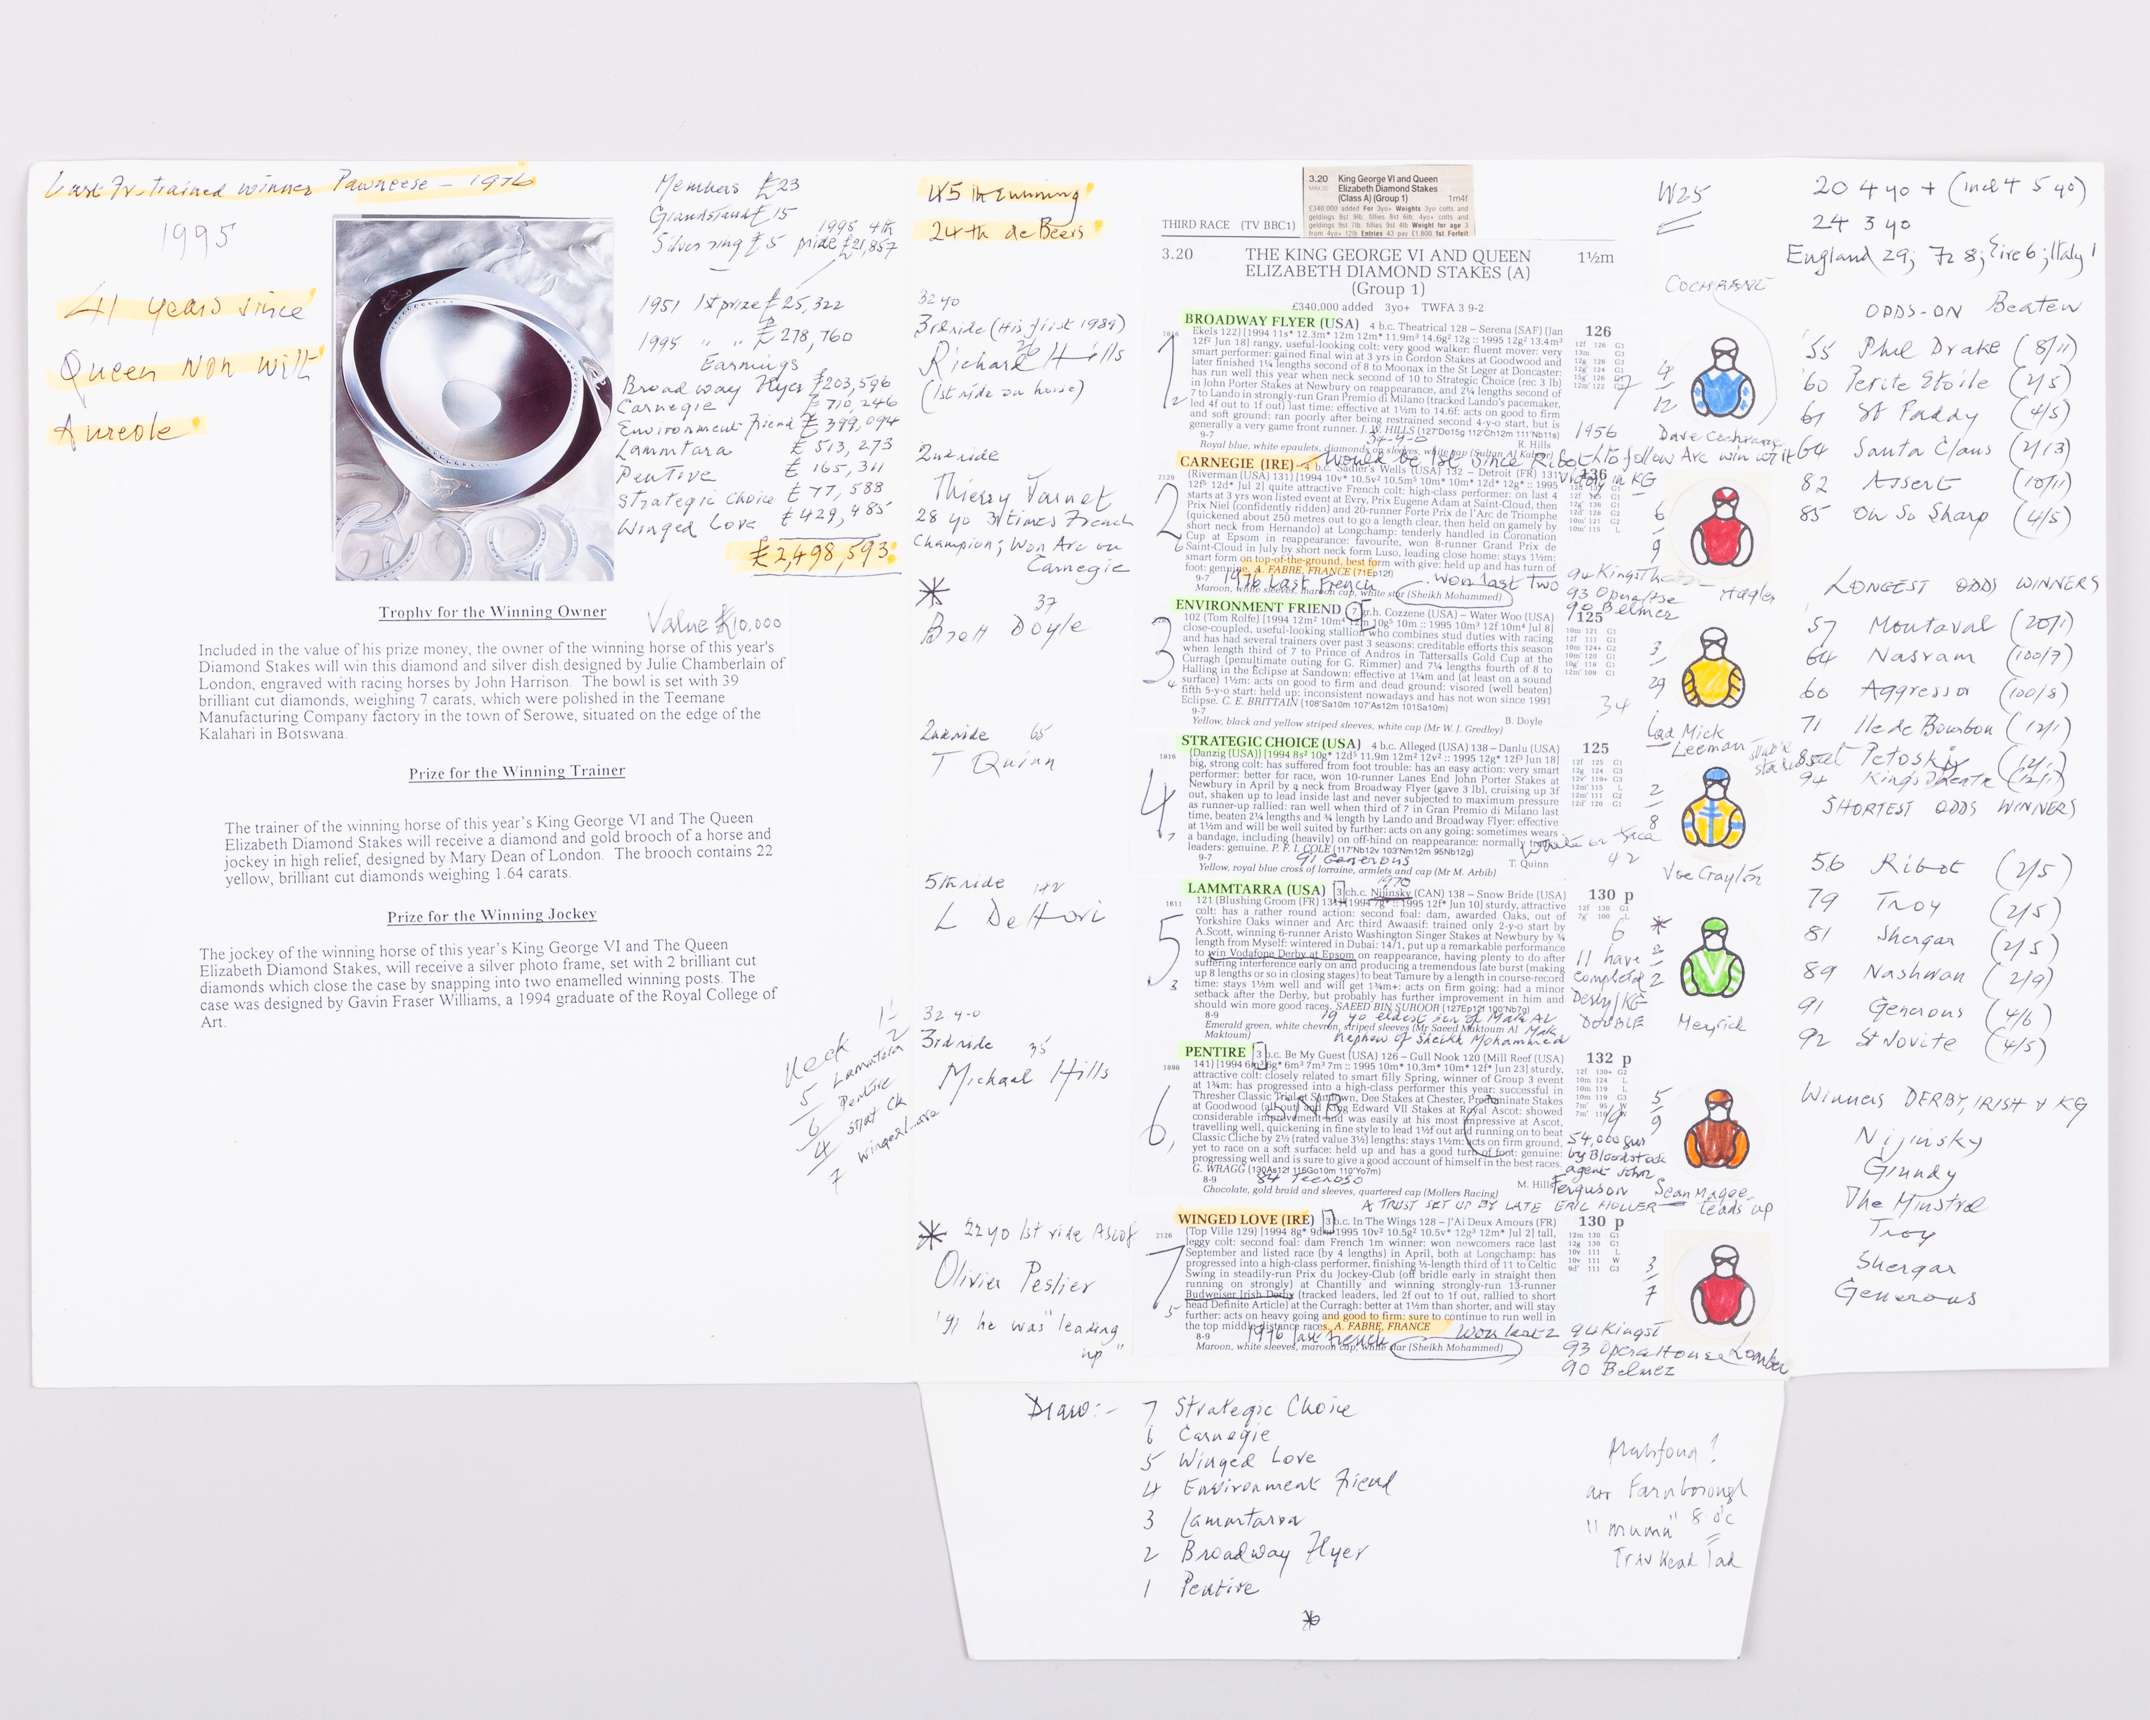 Last Fr-trained winner Pawneese – 1976
1995
41 years since
Queen won with
Aureole
Members £23
Grandstand £15
Silver ring £5
1995 4th
prize £21,857
1951 1st prize £25,322
1995 " " £278,760
Earnings
Broadway Flyer £203,596
Carnegie £710,246
Environment Friend £399,094
Lammtara £513,273
Pentire £165,311
Strategic Choice £77,588
Winged Love £429,485
£2,498,593
Trophy for the Winning Owner
Value £10,000
Included in the value of his prize money, the owner of the winning horse of this year's
Diamond Stakes will win this diamond and silver dish designed by Julie Chamberlain of
London, engraved with racing horses by John Harrison. The bowl is set with 39
brilliant cut diamonds, weighing 7 carats, which were polished in the Teemane
Manufacturing Company factory in the town of Serowe, situated on the edge of the
Kalahari in Botswana.
Prize for the Winning Trainer
The trainer of the winning horse of this year's King George VI and The Queen
Elizabeth Diamond Stakes will receive a diamond and gold brooch of a horse and
jockey in high relief, designed by Mary Dean of London. The brooch contains 22
yellow, brilliant cut diamonds weighing 1.64 carats.
Prize for the Winning Jockey
The jockey of the winning horse of this year's King George VI and The Queen
Elizabeth Diamond Stakes, will receive a silver photo frame, set with 2 brilliant cut
diamonds which close the case by snapping into two enamelled winning posts. The
case was designed by Gavin Fraser Williams, a 1994 graduate of the Royal College of
Art.
Neck
5 Lammtara
6 Pentire
4 Strat Ch
7 Winged Love
45th running
24th de Beers
32 yo
3rd ride (His first 1989)
Richard Hills
(1st ride on horse)
2nd ride
Thierry Jarnet
28 yo 3 times French
Champion; Won Arc on
Carnegie
37
Brett Doyle
2nd ride 65
T Quinn
5th ride 142
L Dettori
32 y-o
3rd ride 35
Michael Hills
22 yo 1st ride Ascot
Olivier Peslier
'91 he was "leading
up"
3.20 King George VI and Queen
Elizabeth Diamond Stakes
(Class A) (Group 1) 1m4f
THIRD RACE (TV BBC1)
3.20 THE KING GEORGE VI AND QUEEN 1½m
ELIZABETH DIAMOND STAKES (A)
(Group 1)
£340,000 added 3yo+ TWFA 3 9-2
1 BROADWAY FLYER (USA) 4 b.c. Theatrical 128 – Serena (SAF) (Jan 126
Ekels 122) [1994 11s* 12.3m* 12m 12m* 11.9m³ 14.6g² 12g :: 1995 12g² 13.4m³
12f² Jun 18] rangy, useful-looking colt: very good walker: fluent mover: very
smart performer: gained final win at 3 yrs in Gordon Stakes at Goodwood and
later finished 1¼ lengths second of 8 to Moonax in the St Leger at Doncaster:
has run well this year when neck second of 10 to Strategic Choice (rec 3 lb)
in John Porter Stakes at Newbury on reappearance, and 2¼ lengths second of
7 to Lando in strongly-run Gran Premio di Milano (tracked Lando's pacemaker,
led 4f out to 1f out) last time: effective at 1½m to 14.6f: acts on good to firm
and soft ground: ran poorly after being restrained second 4-y-o start, but is
generally a very game front runner. J. W. HILLS
9-7 R. Hills
Royal blue, white epaulets, diamonds on sleeves, white cap (Sultan Al Kabeer)
Would be 1st since Ribot to follow Arc win with
1956
victory in KG
2 CARNEGIE (IRE) 4 b.c. Sadler's Wells (USA) 132 – Detroit (FR) 131 136
(Riverman (USA) 131) [1994 10v* 10.5v² 10.5m⁵ 10m* 10m* 12d* 12g* :: 1995
12f⁵ 12d* Jul 2] quite attractive French colt: high-class performer: on last 4
starts at 3 yrs won listed event at Evry, Prix Eugene Adam at Saint-Cloud, then
Prix Niel (confidently ridden) and 20-runner Forte Prix de l'Arc de Triomphe
(quickened about 250 metres out to go a length clear, then held on gamely by
short neck from Hernando) at Longchamp: tenderly handled in Coronation
Cup at Epsom in reappearance: favourite, won 8-runner Grand Prix de
Saint-Cloud in July by short neck form Luso, leading close home: stays 1½m:
smart form on top-of-the-ground, best form with give: held up and has turn of
foot: genuine. A. FABRE, FRANCE
1976 Last French
Won last two
9-7
Maroon, white sleeves, maroon cap, white star (Sheikh Mohammed)
93 Opera Hse
90 Belmez
3 ENVIRONMENT FRIEND 7 gr.h. Cozzene (USA) – Water Woo (USA) 125
102 (Tom Rolfe) [1994 12m² 10m⁴ 12m 10g⁵ 10m :: 1995 10m³ 12f 10m⁴ Jul 8]
close-coupled, useful-looking stallion who combines stud duties with racing
and has had several trainers over past 3 seasons: creditable efforts this season
when length third of 7 to Prince of Andros in Tattersalls Gold Cup at the
Curragh (penultimate outing for G. Rimmer) and 7¼ lengths fourth of 8 to
Halling in the Eclipse at Sandown: effective at 1¼m and (at least on a sound
surface) 1½m: acts on good to firm and dead ground: visored (well beaten)
fifth 5-y-o start: held up: inconsistent nowadays and has not won since 1991
Eclipse. C. E. BRITTAIN (108³Sa10m 107⁴As12m 101Sa10m)
9-7 B. Doyle
Yellow, black and yellow striped sleeves, white cap (Mr W. J. Gredley)
4 STRATEGIC CHOICE (USA) 4 b.c. Alleged (USA) 138 – Danlu (USA) 125
(Danzig (USA)) [1994 8s² 10g* 12d⁵ 11.9m 12m² 12v² :: 1995 12g* 12f³ Jun 18]
big, strong colt: has suffered from foot trouble: has an easy action: very smart
performer: better for race, won 10-runner Lanes End John Porter Stakes at
Newbury in April by a neck from Broadway Flyer (gave 3 lb), cruising up 3f
out, shaken up to lead inside last and never subjected to maximum pressure
as runner-up rallied: ran well when third of 7 in Gran Premio di Milano last
time, beaten 2¼ lengths and ¾ length by Lando and Broadway Flyer: effective
at 1½m and will be well suited by further: acts on any going: sometimes wears
a bandage, including (heavily) on off-hind on reappearance: normally tracks
leaders: genuine. P. F. I. COLE (117⁴Nb12v 103³Nm12m 95Nb12g)
91 Generous
9-7 T. Quinn
Yellow, royal blue cross of lorraine, armlets and cap (Mr M. Arbib)
1970
5 LAMMTARRA (USA) 3 ch.c. Nijinsky (CAN) 138 – Snow Bride (USA) 130 p
121 (Blushing Groom (FR) 131) [1994 7g* :: 1995 12f* Jun 10] sturdy, attractive
colt: has a rather round action: second foal: dam, awarded Oaks, out of
Yorkshire Oaks winner and Arc third Awaasif: trained only 2-y-o start by
A.Scott, winning 6-runner Aristo Washington Singer Stakes at Newbury by ¾
length from Myself: wintered in Dubai: 14/1, put up a remarkable performance
to win Vodafone Derby at Epsom on reappearance, having plenty to do after
suffering interference early on and producing a tremendous late burst (making
up 8 lengths or so in closing stages) to beat Tamure by a length in course-record
time: stays 1½m well and will get 1¾m+: acts on firm going: had a minor
setback after the Derby, but probably has further improvement in him and
should win more good races. SAEED BIN SUROOR (127Ep12f 100⁺Nb7g)
19 yo eldest son of Mak Al Mak
8-9
Emerald green, white chevron, striped sleeves (Mr Saeed Maktoum Al
Maktoum)
nephew of Sheikh Mohammed
11 have
completed
Derby/KG
DOUBLE
6 PENTIRE 3 b.c. Be My Guest (USA) 126 – Gull Nook 120 (Mill Reef (USA) 132 p
141) [1994 6m³ 6g* 6m³ 7m³ 7m :: 1995 10m* 10.3m* 10m* 12f* Jun 23] sturdy,
attractive colt: closely related to smart filly Spring, winner of Group 3 event
at 1¾m: has progressed into a high-class performer this year: successful in
Thresher Classic Trial at Sandown, Dee Stakes at Chester, Predominate Stakes
at Goodwood (all but) and King Edward VII Stakes at Royal Ascot: showed
considerable improvement and was easily at his most impressive at Ascot,
travelling well, quickening in fine style to lead 1½f out and running on to beat
Classic Cliche by 2½ (rated value 3½) lengths: stays 1½m: acts on firm ground,
yet to race on a soft surface: held up and has a good turn of foot: genuine:
progressing well and is sure to give a good account of himself in the best races.
G. WRAGG (130As12f 116Go10m 110⁺Yo7m)
84 Teenoso
8-9 M. Hills
Chocolate, gold braid and sleeves, quartered cap (Mollers Racing)
NB
54,000 gns
by Bloodstock
agent John
Ferguson
A TRUST SET UP BY LATE ERIC MOLLER
7 WINGED LOVE (IRE) 3 b.c. In The Wings 128 – J'Ai Deux Amours (FR) 130 p
(Top Ville 129) [1994 8g* 9d :: 1995 10v² 10.5g² 10.5v* 12g³ 12m* Jul 2] tall,
leggy colt: second foal: dam French 1m winner: won newcomers race last
September and listed race (by 4 lengths) in April, both at Longchamp: has
progressed into a high-class performer, finishing ½-length third of 11 to Celtic
Swing in steadily-run Prix du Jockey-Club (off bridle early in straight then
running on strongly) at Chantilly and winning strongly-run 13-runner
Budweiser Irish Derby (tracked leaders, led 2f out to 1f out, rallied to short
head Definite Article) at the Curragh: better at 1½m than shorter, and will stay
further: acts on heavy going and good to firm: sure to continue to run well in
the top middle-distance races. A. FABRE, FRANCE
1976 last French
Won last 2 94 Kings T
8-9
Maroon, white sleeves, maroon cap, white star (Sheikh Mohammed)
93 Opera House
90 Belmez
W25
COCHRANE
Dave Cochrane
Lad Mick
Leeman
Joe Crayton
Meyrick
Sean Magee
leads up
20 4 yo + (incl 4 5 yo)
24 3 yo
England 29; Fr 8; Eire 6; Italy 1
ODDS-ON Beaten
'55 Phil Drake (8/11)
'60 Petite Etoile (2/5)
61 St Paddy (4/5)
64 Santa Claus (2/13)
82 Assert (10/11)
85 Oh So Sharp (4/5)
LONGEST ODDS WINNERS
57 Montaval (20/1)
64 Nasram (100/7)
60 Aggressor (100/8)
71 Ile de Bourbon (12/1)
85 Petoski (12/1)
94 Kings Theatre (12/1)
SHORTEST ODDS WINNERS
56 Ribot (2/5)
79 Troy (2/5)
81 Shergar (2/5)
89 Nashwan (2/9)
91 Generous (4/6)
92 St Jovite (4/5)
Winners DERBY, IRISH & KG
Nijinsky
Grundy
The Minstrel
Troy
Shergar
Generous
Draw:- 7 Strategic Choice
6 Carnegie
5 Winged Love
4 Environment Friend
3 Lammtarra
2 Broadway Flyer
1 Pentire
arr Farnborough
"mumu" 8 o'c
Trav Head Lad